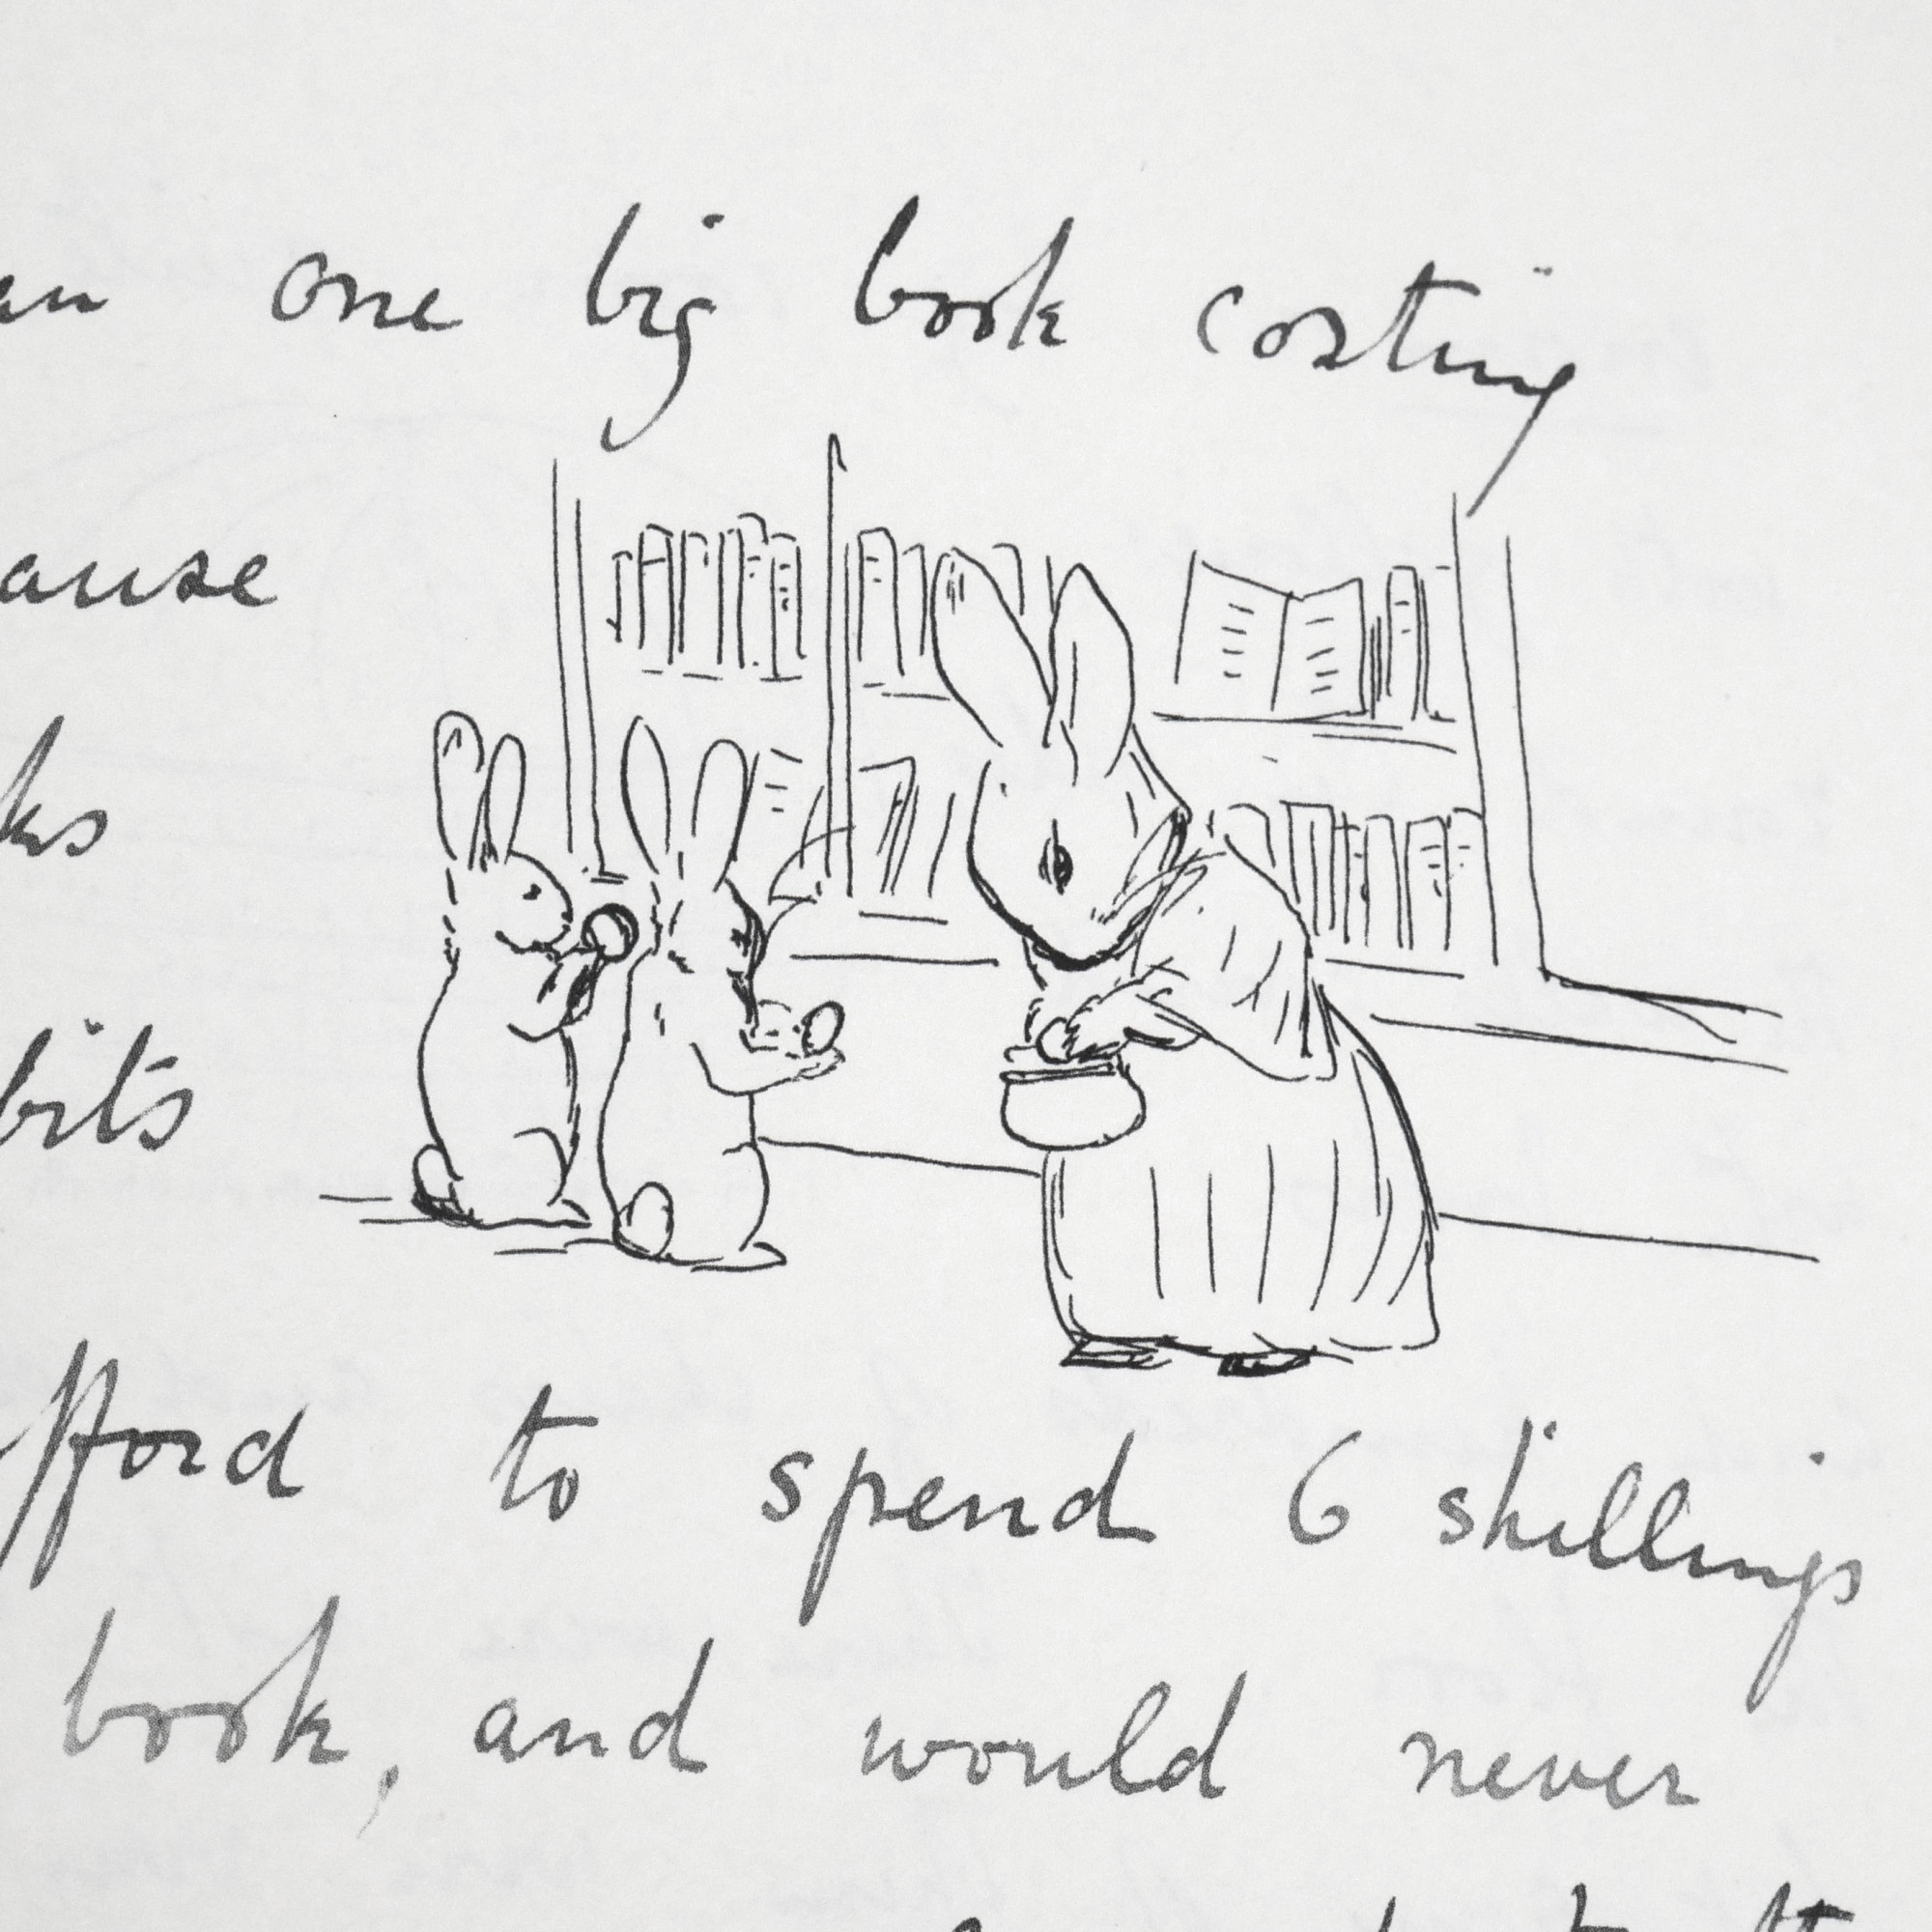 one big book costing
ause
ks
bits
fford to spend 6 shillings
book, and would never